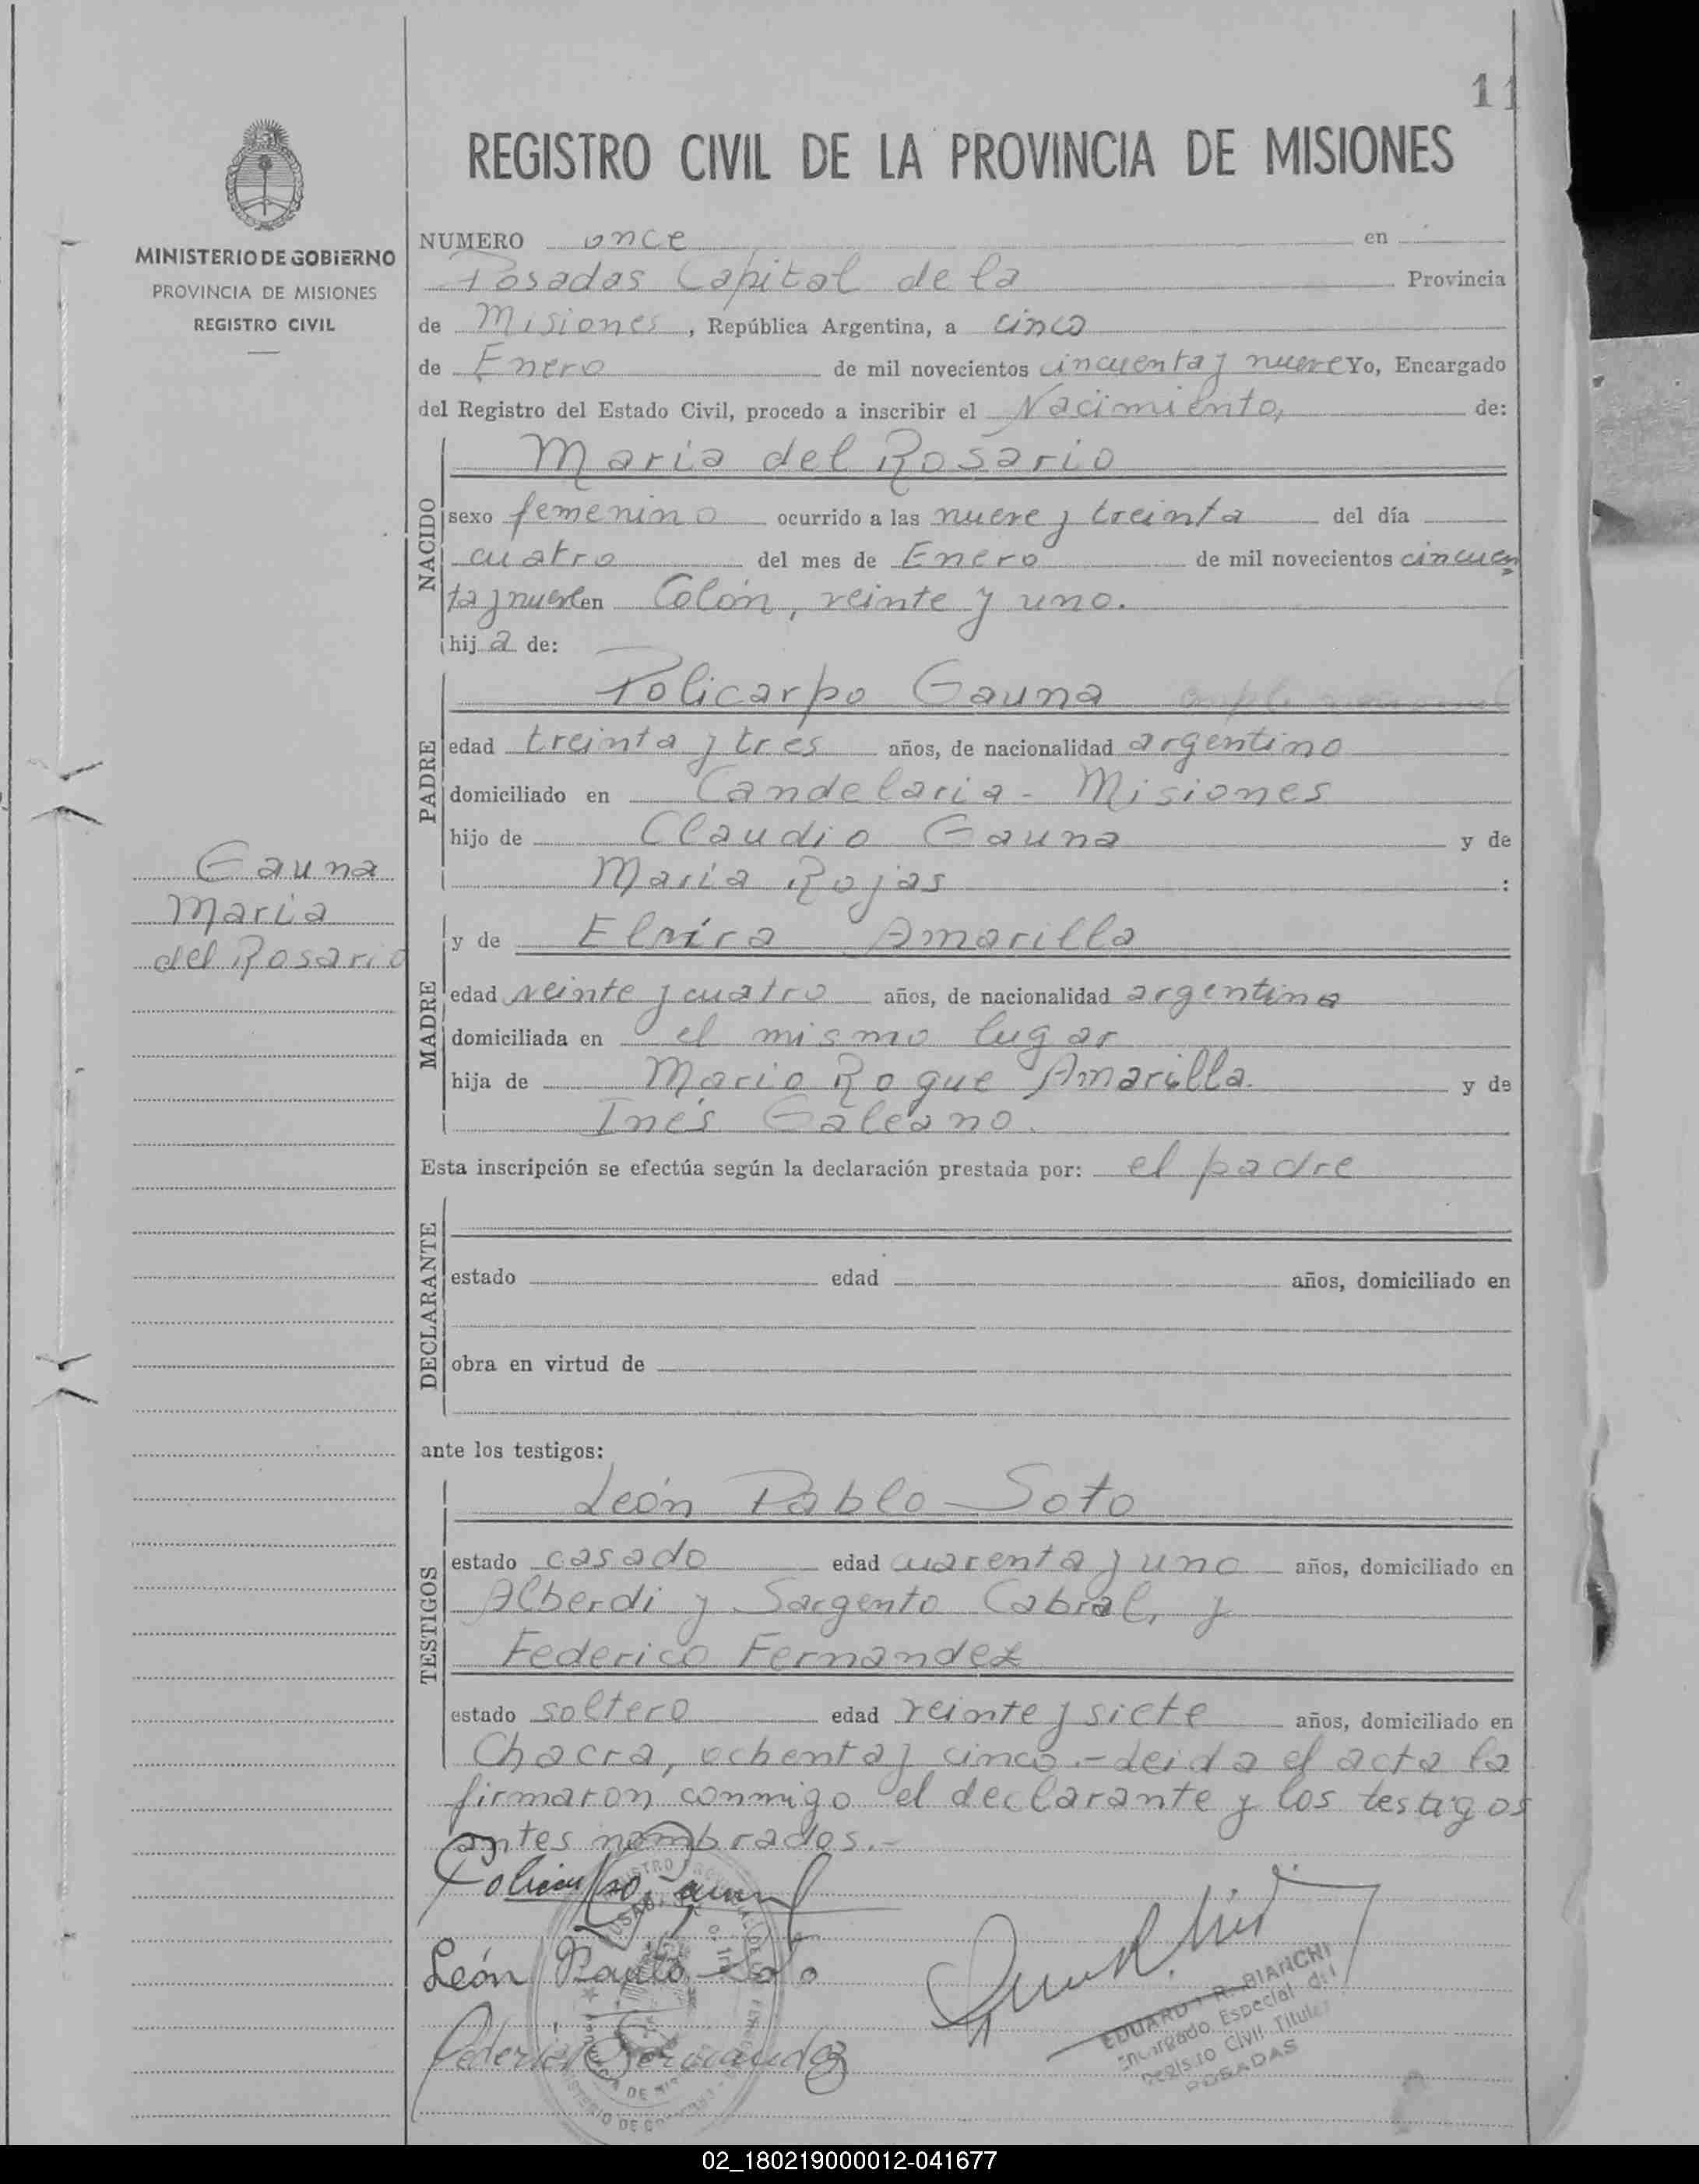 11
REGISTRO CIVIL DE LA PROVINCIA DE MISIONES
MINISTERIO DE GOBIERNO
PROVINCIA DE MISIONES
REGISTRO CIVIL
NUMERO once en
Posadas Capital de la Provincia
de Misiones, República Argentina, a cinco
de Enero de mil novecientos cincuenta y nueve Yo, Encargado
del Registro del Estado Civil, procedo a inscribir el Nacimiento, de:
NACIDO
Maria del Rosario
sexo femenino ocurrido a las nueve y treinta del día
cuatro del mes de Enero de mil novecientos cincuen
ta y nueve en Colón, veinte y uno.
hija de:
PADRE
Policarpo Gauna
edad treinta y tres años, de nacionalidad argentino
domiciliado en Candelaria - Misiones
hijo de Claudio Gauna y de
Maria Rojas :
Gauna
Maria
del Rosario
MADRE
y de Elvira Amarilla
edad veinte y cuatro años, de nacionalidad argentina
domiciliada en el mismo lugar
hija de Mario Roque Amarilla y de
Inés Galeano.
Esta inscripción se efectúa según la declaración prestada por: el padre
DECLARANTE
estado edad años, domiciliado en
obra en virtud de
ante los testigos:
TESTIGOS
León Pablo Soto
estado casado edad cuarenta y uno años, domiciliado en
Alberdi y Sargento Cabral, y
Federico Fernandez
estado soltero edad veinte y siete años, domiciliado en
Chacra, ochenta y cinco.- Leida el acta la
firmaron conmigo el declarante y los testigos
antes nombrados.-
Policarpo Gauna
León Pablo Soto
Federico Fernandez
EDUARDO R. BIANCHI
Encargado Especial del
Registro Civil Titular
POSADAS
02_180219000012-041677